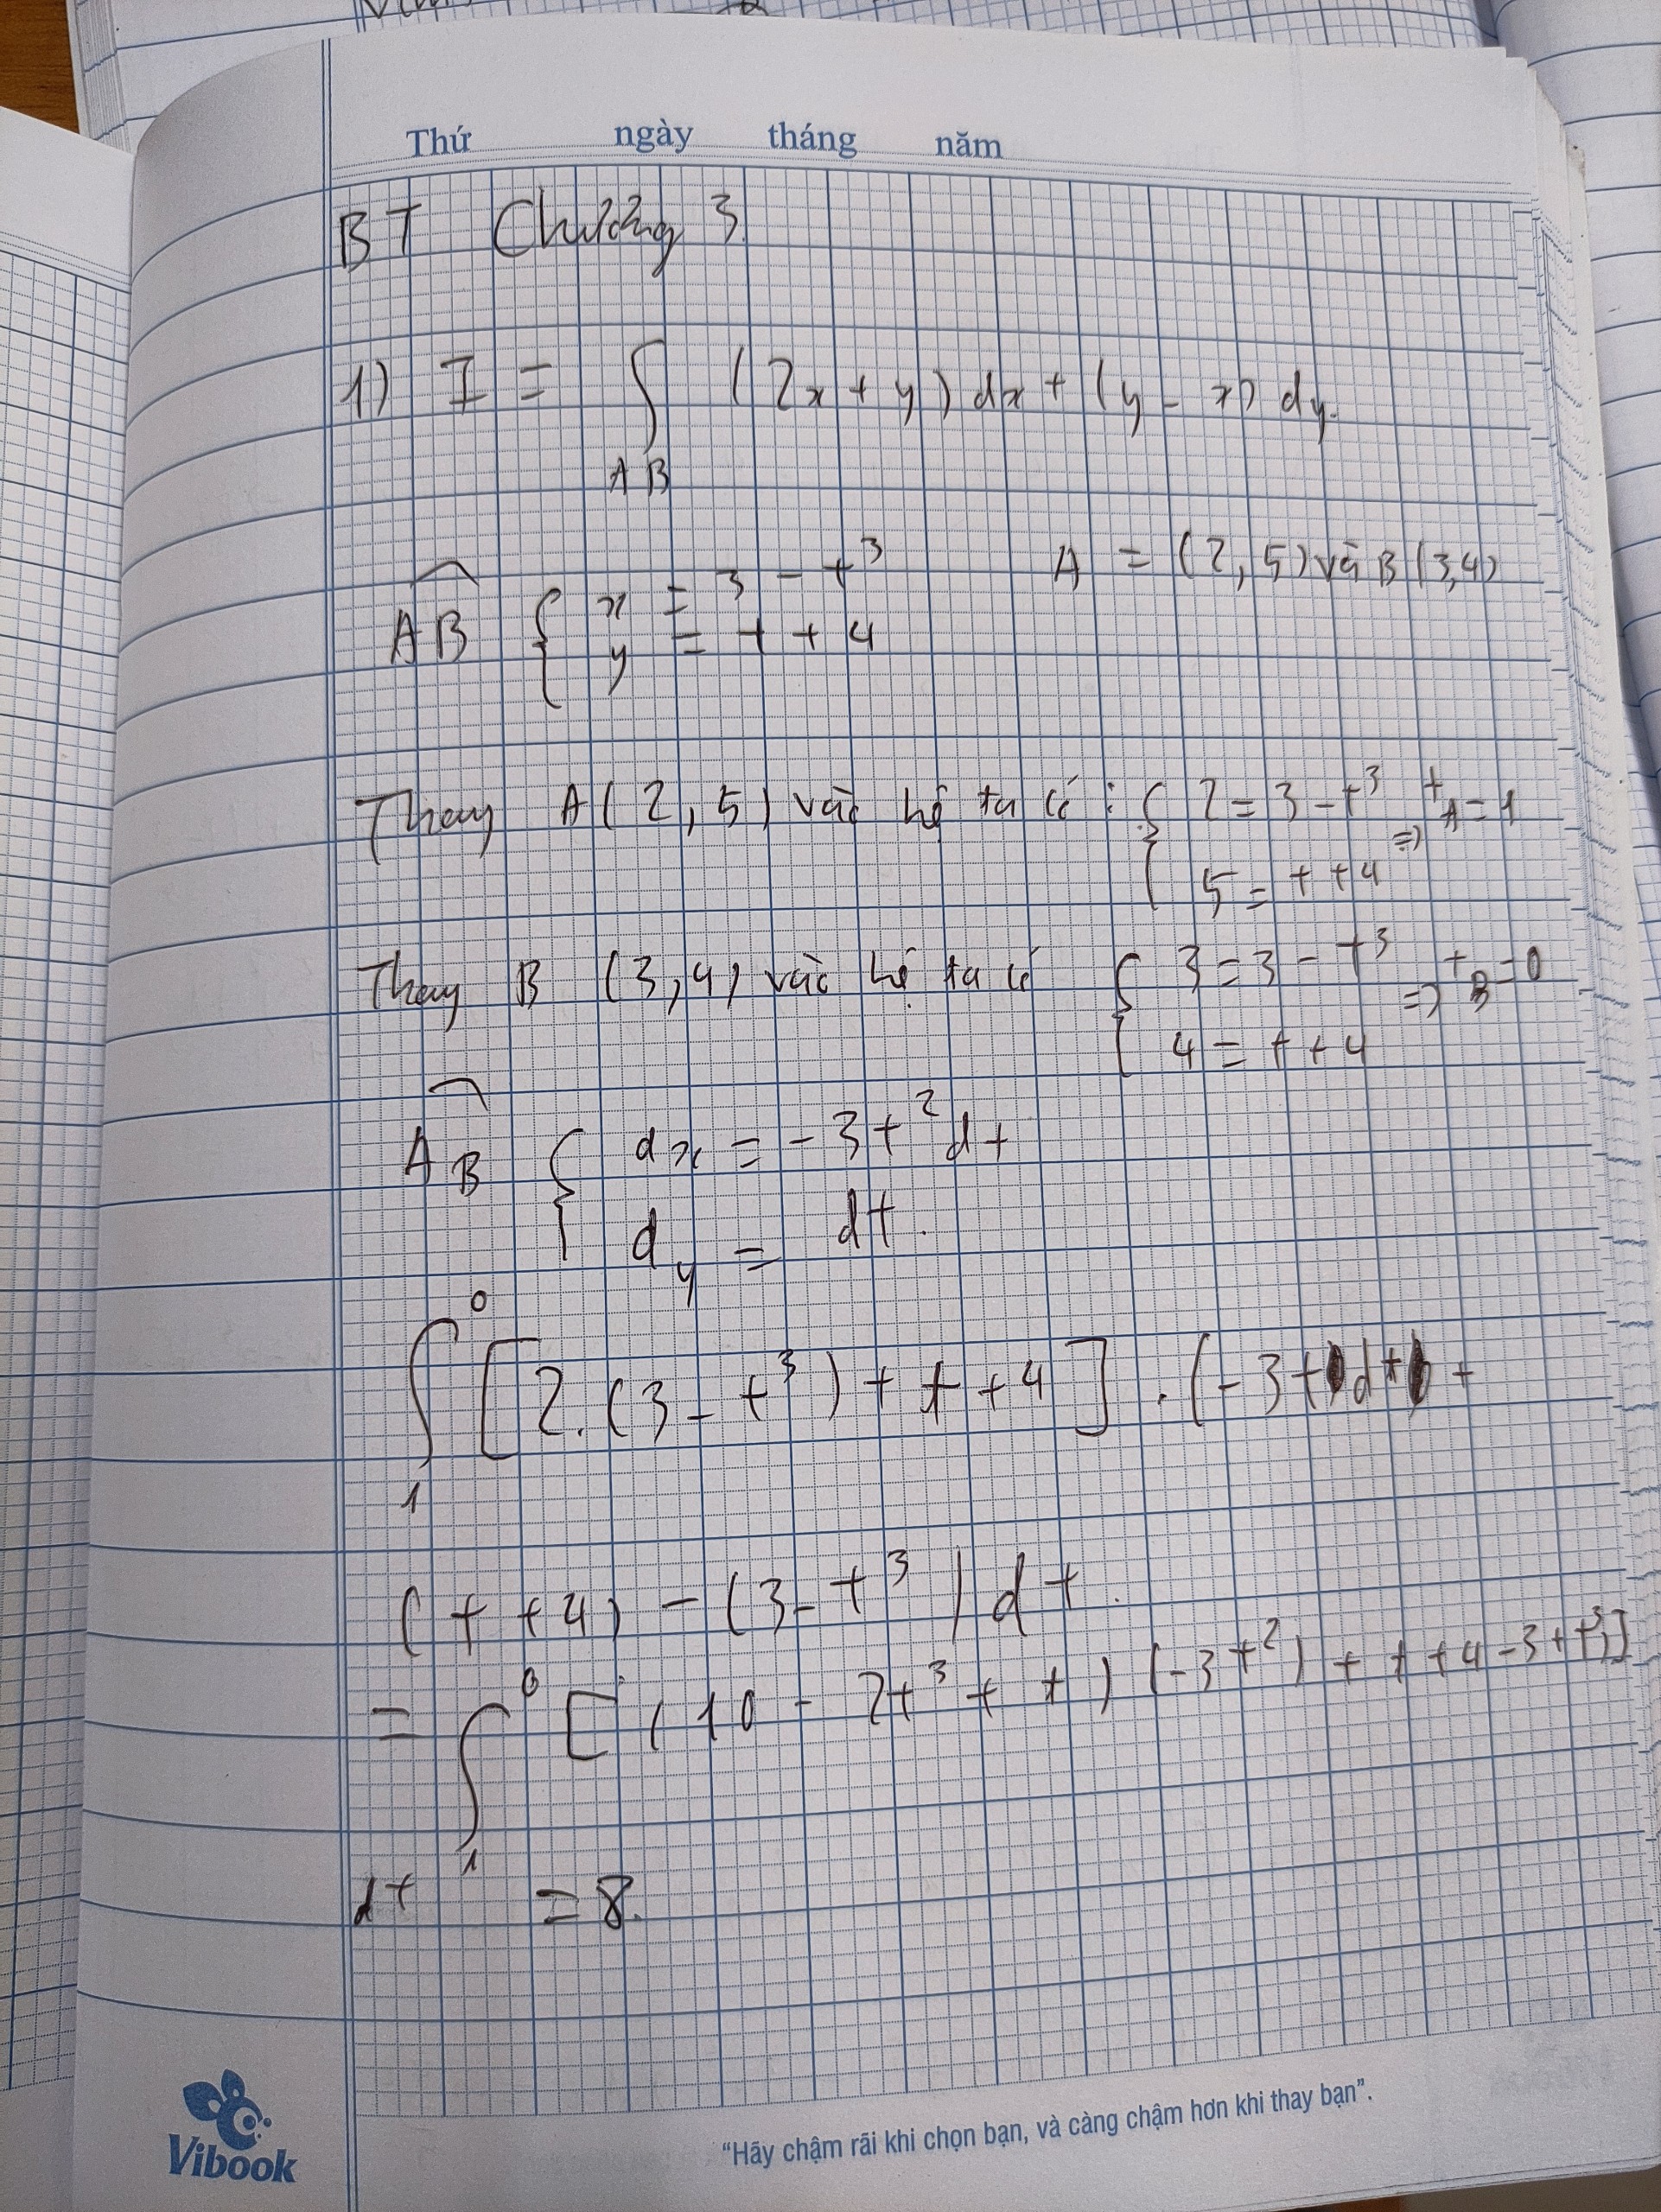 Thứ ngày tháng năm
BT Chương 3
1) I = ∫ (2x + y) dx + (y - x) dy.
AB
AB { x = 3 - t³ A = (2, 5) và B (3,4)
y = t + 4
Thay A (2, 5) vào hệ ta có : { 2 = 3 - t³ => t_A = 1
5 = t + 4
Thay B (3,4) vào hệ ta có { 3 = 3 - t³ => t_B = 0
4 = t + 4
AB { dx = -3t² dt
dy = dt.
∫₁⁰ [2.(3 - t³) + t + 4] . (-3t dt +
(t + 4) - (3 - t³) dt.
= ∫₁⁰ [(10 - 2t³ + t) (-3t²) + t + 4 - 3 + t³)]
dt = 8.
Vibook
“Hãy chậm rãi khi chọn bạn, và càng chậm hơn khi thay bạn”.